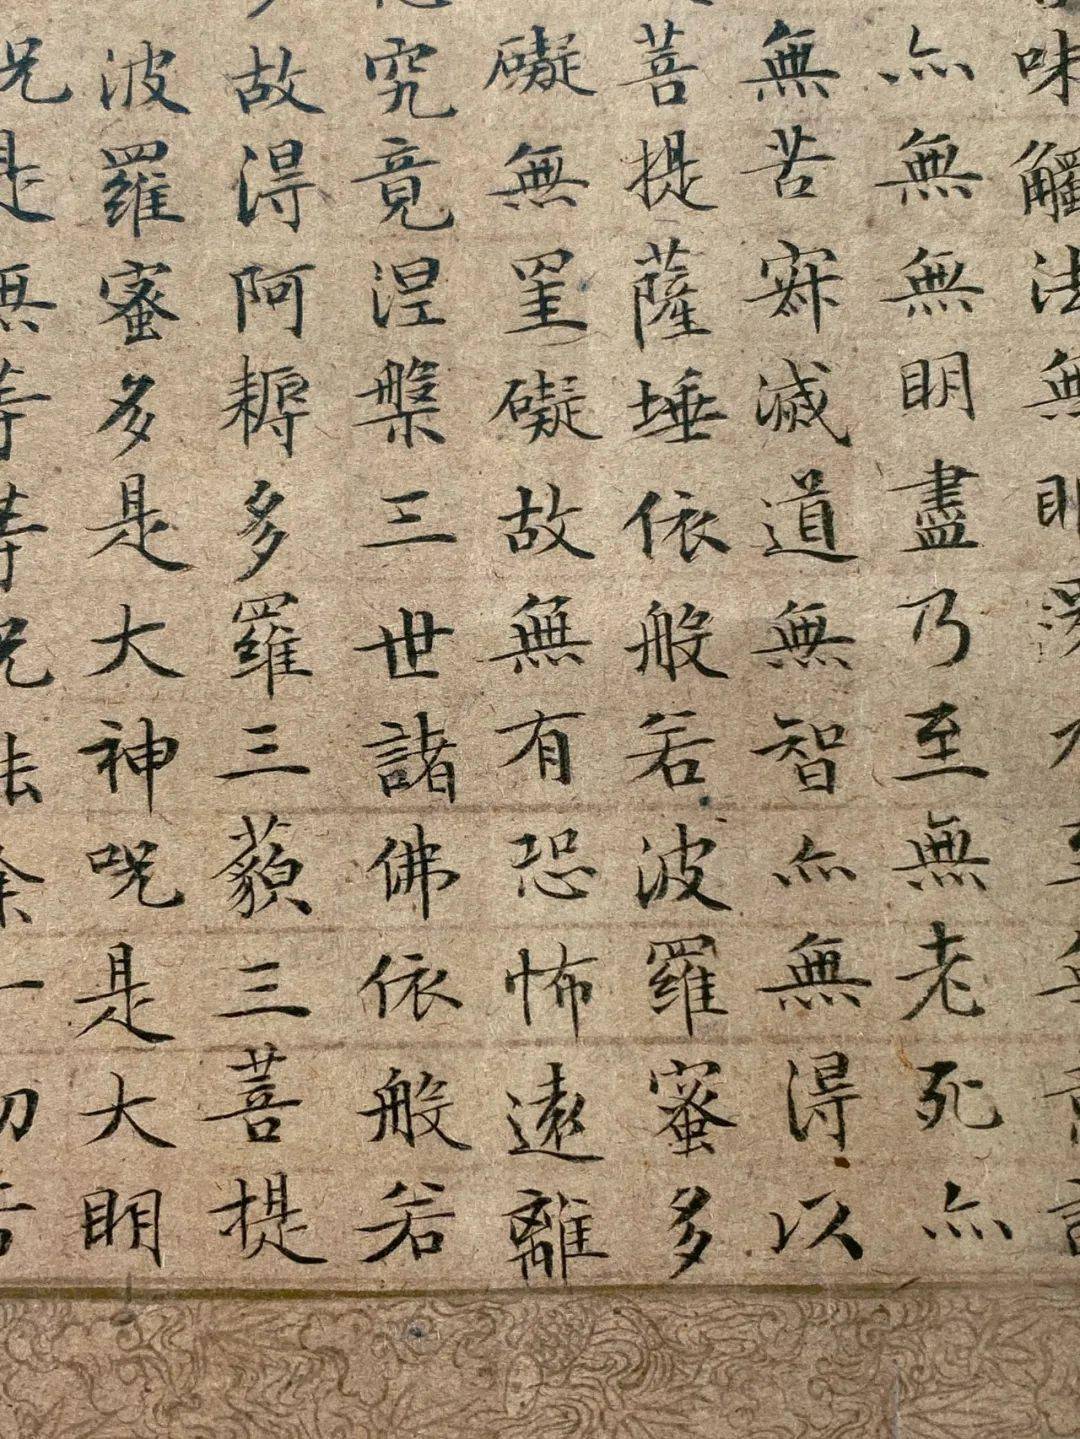 味觸法無眼界乃至無意識
亦無無眀盡乃至無老死亦
無苦寂滅道無智亦無得以
菩提薩埵依般若波羅蜜多
礙無罣礙故無有恐怖遠離
究竟涅槃三世諸佛依般若
故得阿耨多羅三藐三菩提
波羅蜜多是大神呪是大眀
呪是無等等呪能除一切苦